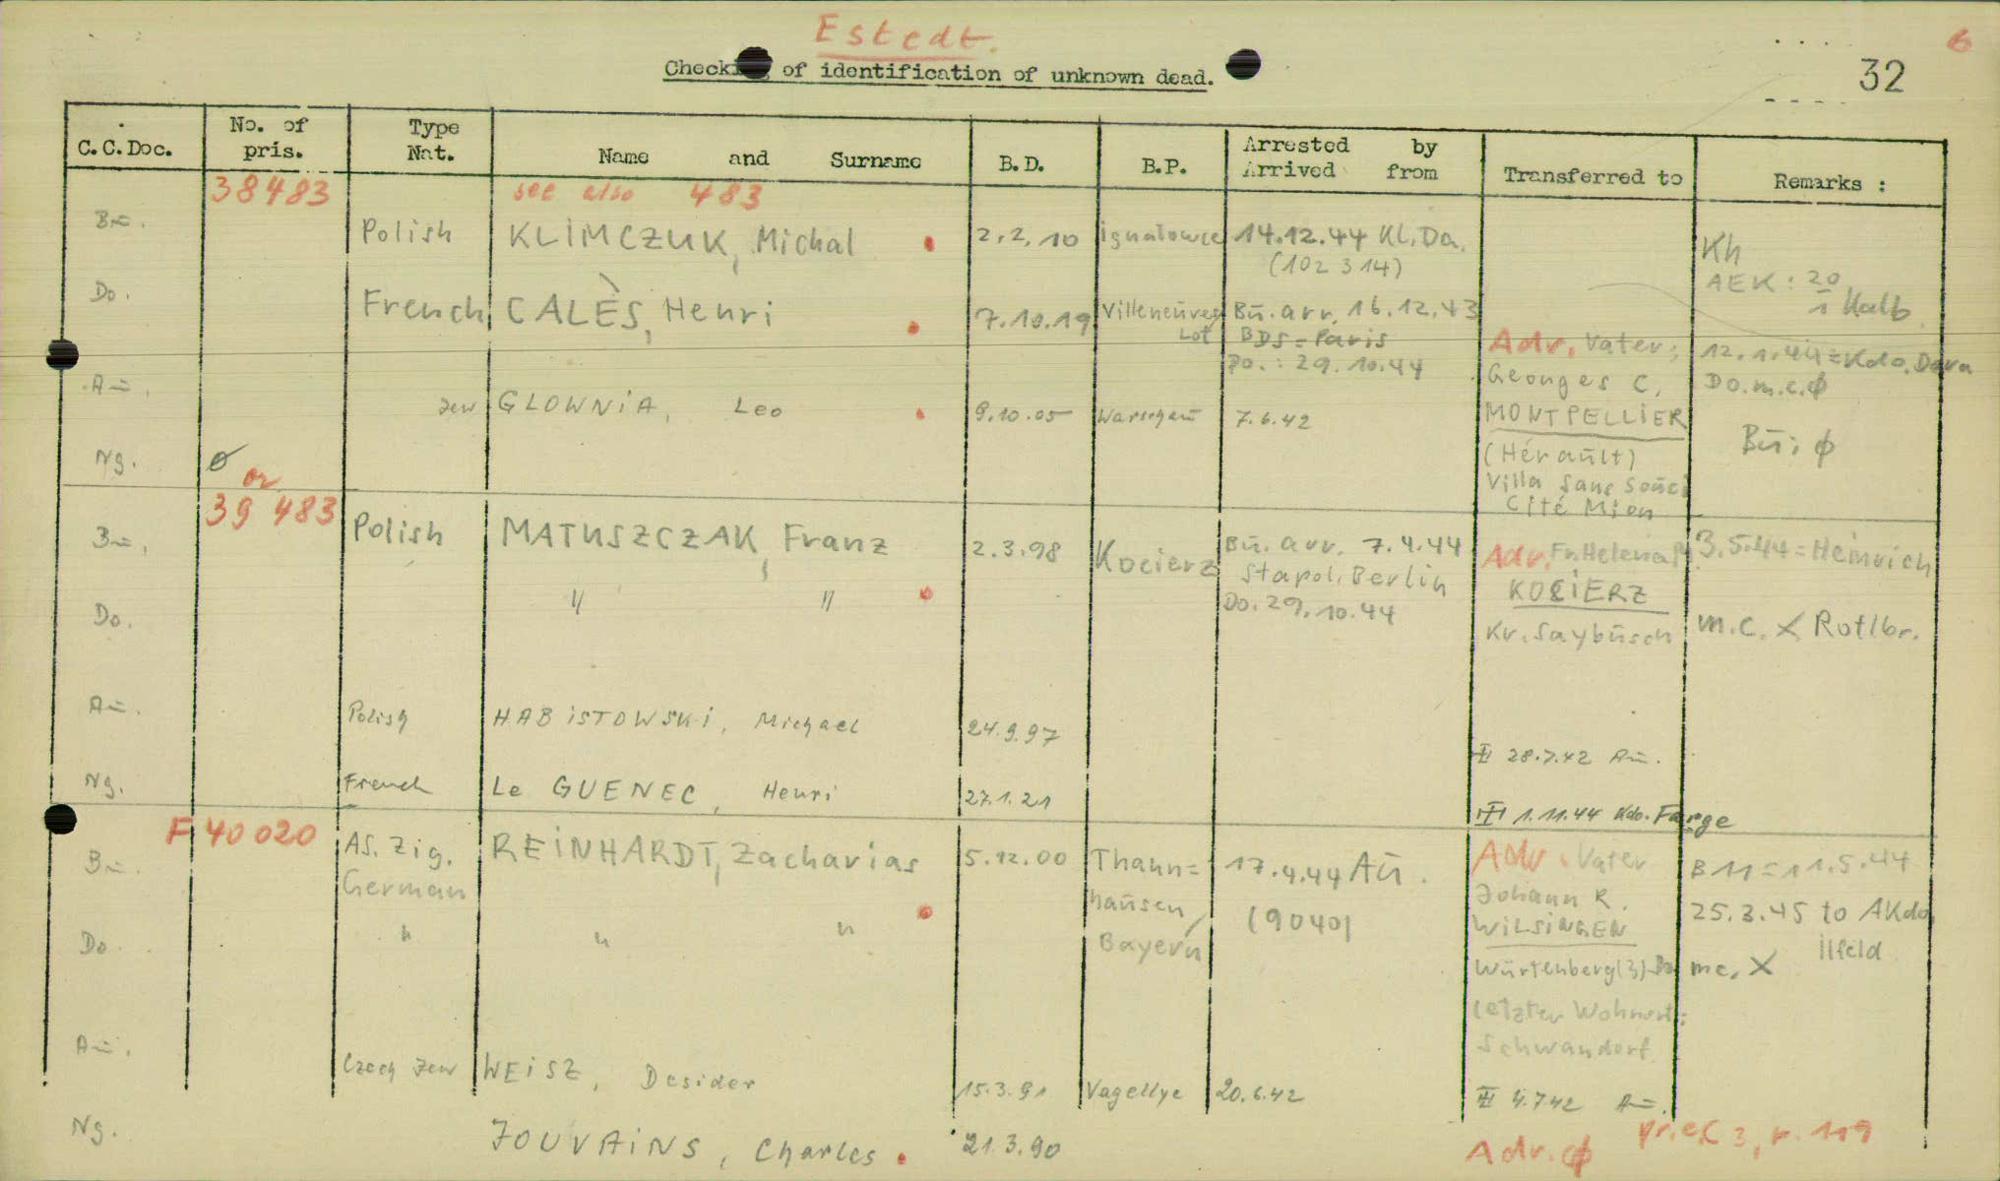 Estedt.
6
Checking of identification of unknown dead.
32
C.C.Doc.
No. of pris.
Type Nat.
Name and Surname
B.D.
B.P.
Arrested by
Arrived from
Transferred to
Remarks :
38483
see also 483
Bū.
Polish KLIMCZUK, Michal 2.2.10 Ignalowce 14.12.44 Kl. Da.
(102 314)
Kh
AEK: 20
1 Kalb
Do.
French CALÈS, Henri 7.10.19 Villeneuve Bū. arr. 16.12.43
Lot BDS = Paris
Do.: 29.10.44
Adr. Vater:
Georges C.
MONTPELLIER
(Héraūlt)
Villa Sans Soūci
Cité Mion
12.1.44 = Kdo. Dora
Do. m.c. ϕ
Bū: ϕ
Aū.
Jew GLOWNIA, Leo 9.10.05 Warschaū 7.6.42
Ng. ø
or
39 483
Bū.
Polish MATUSZCZAK, Franz 2.3.98 Kocierz Bū. arr. 7.4.44
Stapol. Berlin
Do. 29.10.44
Adr. Fr. Helena
KOCIERZ
Kr. Saybūsch
3.5.44 = Heinrich
Do.
" "
m.c. X Rotlbr.
Aū.
Polish HABISTOWSKI, Michael 24.9.97
II 28.7.42 Aū.
Ng.
French Le GUENEC, Henri 27.1.21
III 1.11.44 Kdo. Farge
F 40 020
Bū.
As. Zig. REINHARDT, Zacharias 5.12.00 Thann=
German
haūsen,
Bayern
17.4.44 Aū.
(9040)
Adr. Vater
Johann R.
WILSINGEN
Würtenberg (3)
letzter Wohnort:
Schwandorf
B 11 = 11.5.44
25.3.45 to AKdo
Ilfeld
Do.
" " "
mc. X
Aū.
Czech Jew WEISZ, Desider 15.3.91 Vagellye 20.6.42
III 4.7.42 Aū.
Ng.
JOUVAINS, Charles 21.3.90
Adr. ϕ